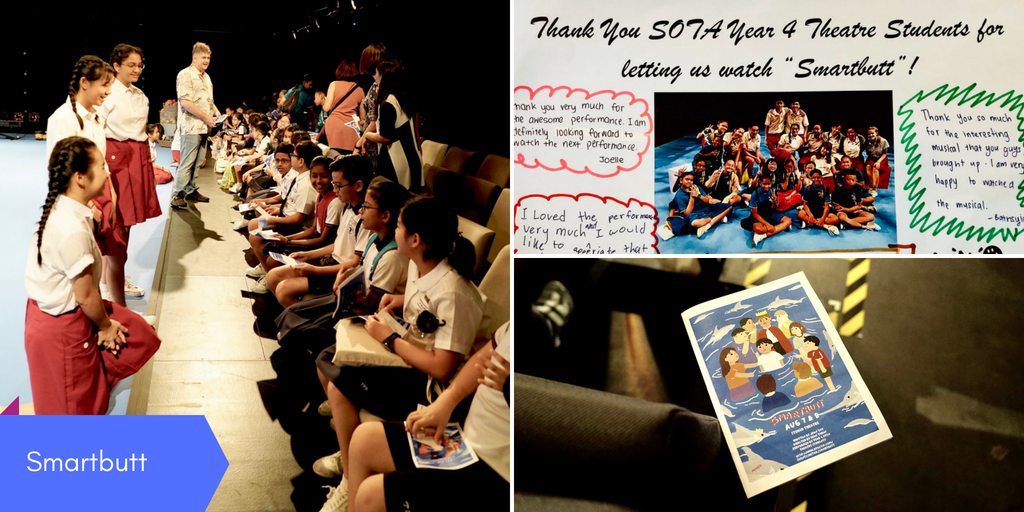 Smartbutt
Thank You SOTA Year 4 Theatre Students for
letting us watch "Smartbutt"!
hank you very much for
the awesome performance. I am
definitely looking forward to
watch the next performance.
Joelle
I Loved the performa
very much and I would
like to
that
Thank you so much
for the interesting
musical that you guys
brought up. I am very
happy to watched
the musical.
SMARTBUTT
AUG 7 & 8
STUDIO THEATRE